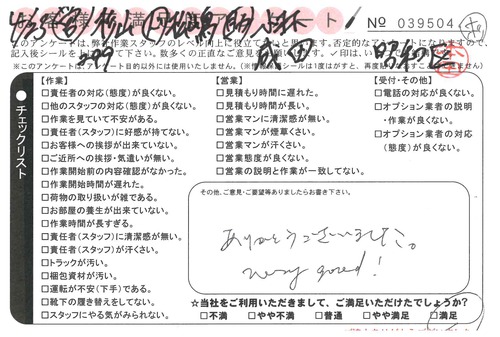 お客様満足アンケート!
No 039504
※このアンケートは、弊社作業スタッフのレベル向上に役立てたいと思います。否定的なアンケートになりますが
※このアンケートは、アンケート目的以外には使用いたしません。
チェックリスト
【作業】
□責任者の対応(態度)が良くない。
□他のスタッフの対応(態度)が良くない。
□作業を見ていて不安がある。
□責任者(スタッフ)に好感が持てない。
□お客様への挨拶が出来ていない。
□ご近所への挨拶・気遣いが無い。
□作業開始前の内容確認がなかった。
□作業開始時間が遅れた。
□荷物の取り扱いが雑である。
□お部屋の養生が出来ていない。
□作業時間が長すぎる。
□責任者(スタッフ)に清潔感が無い。
□責任者(スタッフ)が汗くさい。
□トラックが汚い。
□梱包資材が汚い。
□運転が不安(下手)である。
□靴下の履き替えをしてない。
□スタッフにやる気がみられない。
【営業】
□見積もり時間に遅れた。
□見積もり時間が長い。
□営業マンに清潔感が無い。
□営業マンが煙草くさい。
□営業マンが汗くさい。
□営業態度が良くない。
□営業の説明と作業が一致してない。
【受付・その他】
□電話の対応が良くない。
□オプション業者の説明
・作業が良くない。
□オプション業者の対応
(態度)が良くない。
その他、ご意見・ご要望等ありましたらお書き下さい。
ありがとうございました。
very good!
☆当社をご利用いただきまして、ご満足いただけたでしょうか?
□不満 □やや不満 □普通 □やや満足 □満足